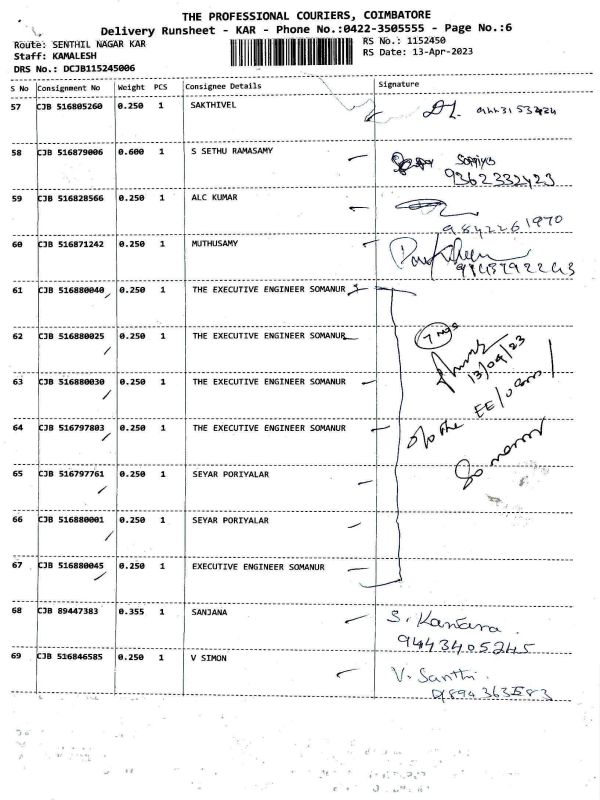 THE PROFESSIONAL COURIERS, COIMBATORE
Delivery Runsheet - KAR - Phone No.:0422-3505555 - Page No.:6
Route: SENTHIL NAGAR KAR
RS No.: 1152450
Staff: KAMALESH
RS Date: 13-Apr-2023
DRS No.: DCJB115245006
S No Consignment No Weight PCS Consignee Details Signature
57 CJB 516805260 0.250 1 SAKTHIVEL
58 CJB 516879006 0.600 1 S SETHU RAMASAMY
9362332423
59 CJB 516828566 0.250 1 ALC KUMAR
9842261970
60 CJB 516871242 0.250 1 MUTHUSAMY
61 CJB 516880040 0.250 1 THE EXECUTIVE ENGINEER SOMANUR
62 CJB 516880025 0.250 1 THE EXECUTIVE ENGINEER SOMANUR
13/04/23
63 CJB 516880030 0.250 1 THE EXECUTIVE ENGINEER SOMANUR
64 CJB 516797803 0.250 1 THE EXECUTIVE ENGINEER SOMANUR
o/o the EE/
Somanur
65 CJB 516797761 0.250 1 SEYAR PORIYALAR
66 CJB 516880001 0.250 1 SEYAR PORIYALAR
67 CJB 516880045 0.250 1 EXECUTIVE ENGINEER SOMANUR
68 CJB 89447383 0.355 1 SANJANA
S. Kantana
9443405245
69 CJB 516846585 0.250 1 V SIMON
V. Santhi